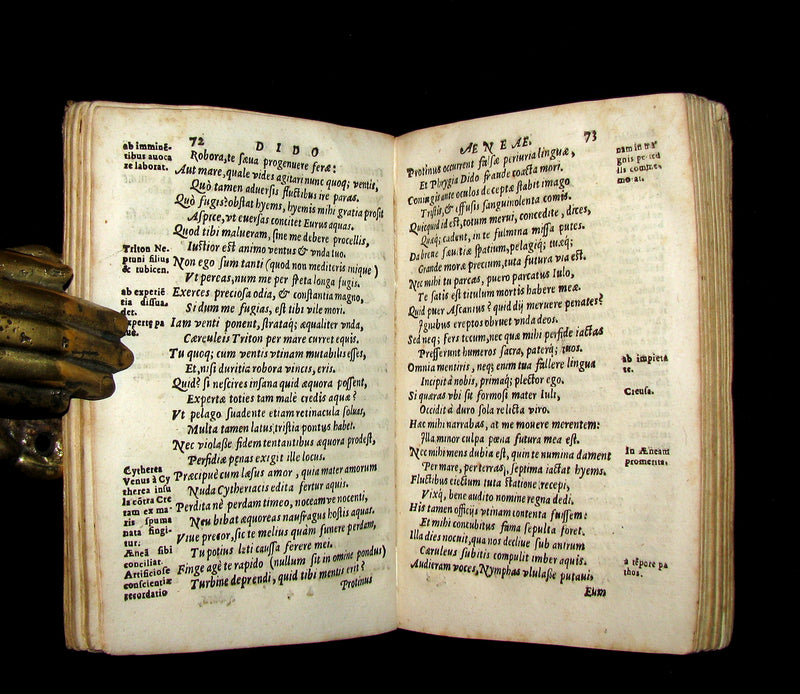 72
DIDO
ab imminē-
tibus auoca
re laborat.
Robora, te sæua progenuere feræ:
Aut mare, quale vides agitari nunc quoq; ventis,
Quò tamen aduersis fluctibus ire paras.
Quò fugis? obstat hyems, hyemis mihi gratia prosit
Aspice, vt euersas concitet Eurus aquas.
Quod tibi malueram, sine me debere procellis,
Iustior est animo ventus & vnda tuo.
Triton Ne-
ptuni filius
& tubicen.
Non ego sum tanti (quod non mediteris inique)
Vt pereas, num me per freta longa fugis.
ab experiē
tia dissua-
det.
Exerces preciosa odia, & constantia magno,
Si dum me fugias, est tibi vile mori.
Iam venti ponent, strataq; æqualiter vnda,
Cæruleis Triton per mare curret equis.
Tu quoq; cum ventis vtinam mutabilis esses,
Et, nisi duritia robora vincis, eris.
Quid? si nescires insana quid æquora possent,
Expertæ toties tam male credis aquæ?
Vt pelago suadente etiam retinacula soluas,
Multa tamen latus tristia pontus habet.
Nec violasse fidem tentantibus æquora prodest,
Perfidiæ pœnas exigit ille locus.
Cytherea
Venus à Cy
therea insu
la cōtra Cre
tam ex ma-
ris spuma
nata fingi-
tur.
Præcipuè cum læsus amor, quia mater amorum
Nuda Cytheriacis edita fertur aquis.
Perdita nè perdam timeo, noceam ve nocenti,
Neu bibat æquoreas naufragus hostis aquas.
Viue precor, sic te melius quàm funere perdam,
Æneā sibi
conciliat.
Tu potius leti caussa ferere mei.
Artificiose
conscientiæ
recordatio
Finge agè te rapido (nullum sit in omine pondus)
Turbine deprendi, quid tibi mentis erit?
Protinus
ÆNEAE.
73
Protinus occurrent falsæ periuria linguæ,
Et Phrygia Dido fraude coacta mori.
Coniugis ante oculos deceptæ stabit imago
Tristis, & effusis sanguinolenta comis.
Quicquid id est, totum merui, concedite, dices,
Quæq; cadent, in te fulmina missa putes.
Da breue sæuitiæ spatium, pelagiq; tuæq;
Grande moræ precium, tuta futura via est.
Nec mihi tu parcas, puero parcatur Iulo,
Te satis est titulum mortis habere meæ.
Quid puer Ascanius? quid dij meruere penates?
Ignibus ereptos obruet vnda deos.
Sed neq; fers tecum, nec quæ mihi perfide iactas
Presserunt humeros sacra, paterq; tuos.
ab impieta
te.
Omnia mentiris, neq; enim tua fallere lingua
Incipit à nobis, primaq; plector ego.
Creusa.
Si quæras vbi sit formosi mater Iuli,
Occidit à duro sola relicta viro.
Hæc mihi narrabas, at me monere merentem:
Illa minor culpa pœna futura mea est.
In Æneam
promerita.
Nec mihi mens dubia est, quin te numina dament
Per mare, per terras, septima iactat hyems.
Fluctibus eiectum tuta statione recepi,
Vixq, bene audito nomine regna dedi.
His tamen officijs vtinam contenta fuissem:
Et mihi concubitus fama sepulta foret.
Illa dies nocuit, qua nos decliue sub antrum
Cæruleus subitis compulit imber aquis.
à tēpore pa
thos.
Audieram voces, Nymphas vlulasse putaui,
Eum